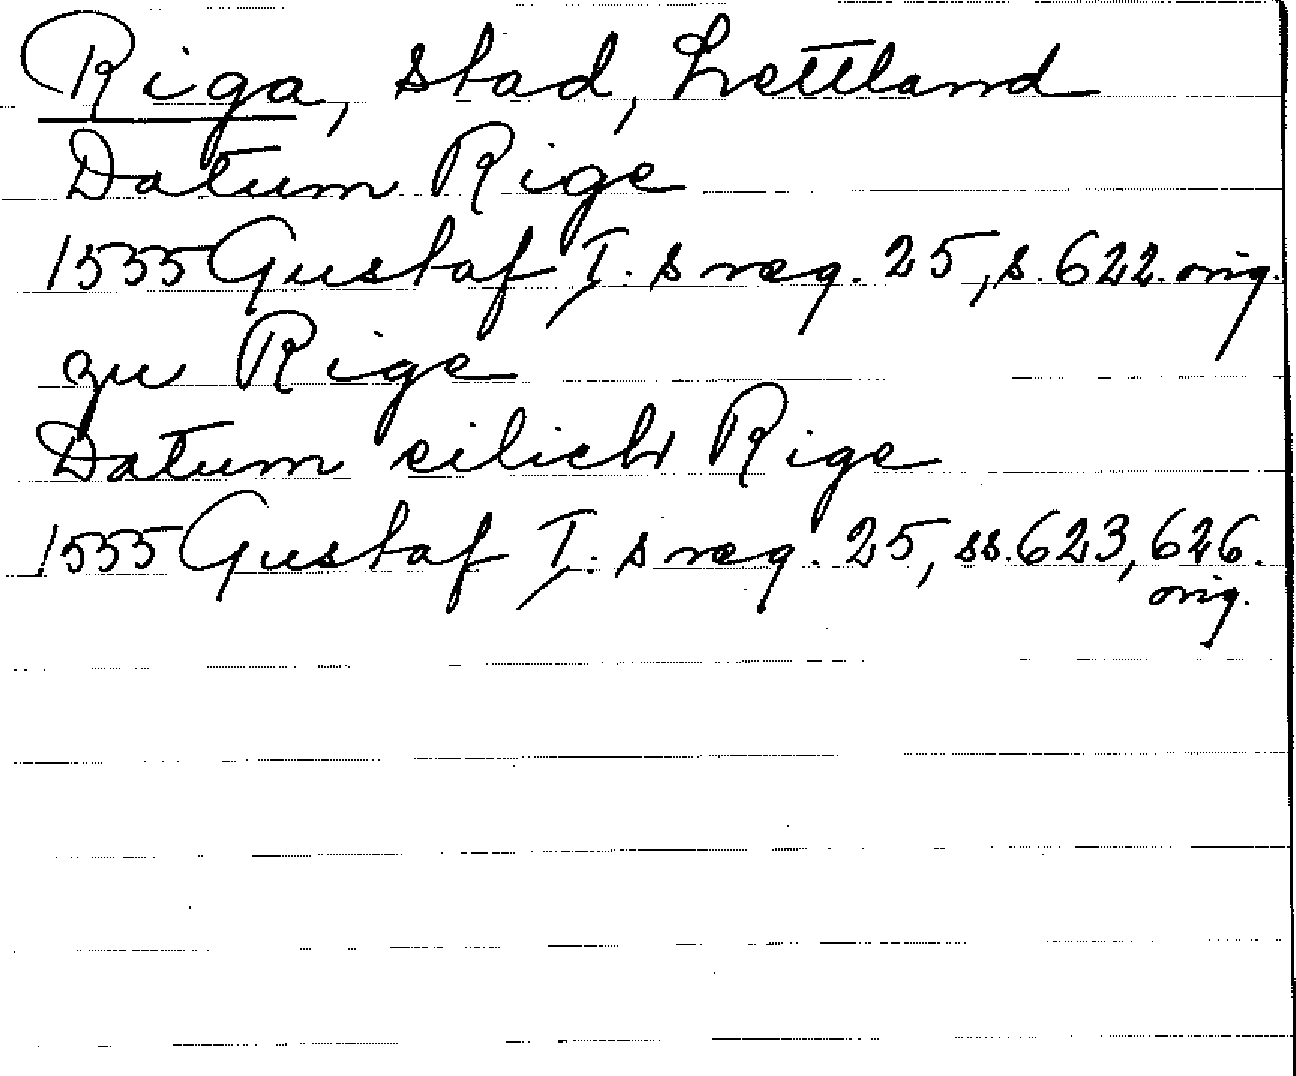 Riga, stad, Lettland
Datum Rige
1535 Gustaf I:s reg. 25, s. 622. orig.
zu Rige
Datum eilich Rige
1535 Gustaf I:s reg. 25, ss. 623, 626.
orig.